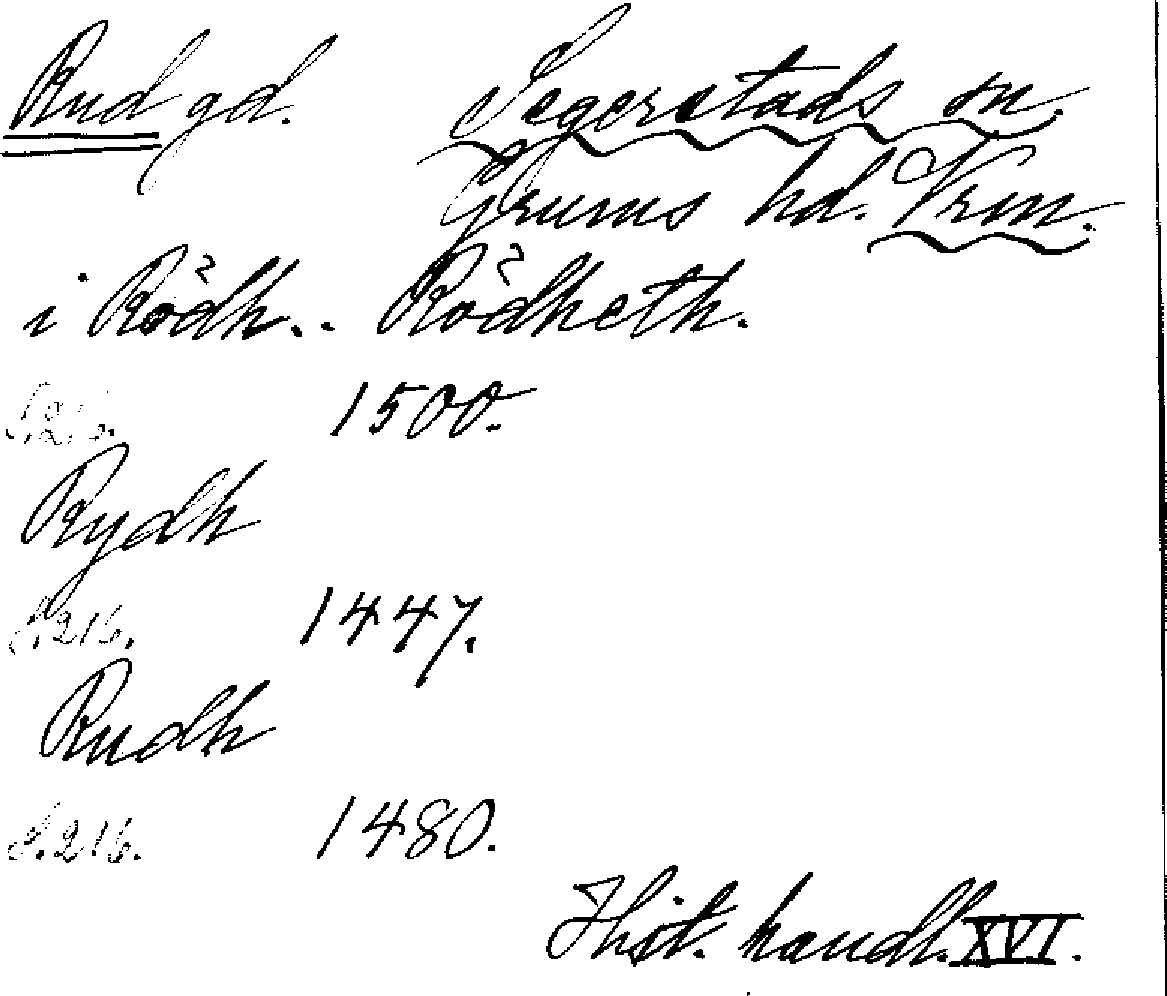 Rud gd. Segerstads sn.
Grums hd. Vrm.
i Rödh.. Rödheth.
S. 216. 1500.
Rydh
S. 216. 1447.
Rudh
S. 216. 1480.
Hist. handl. XVI.